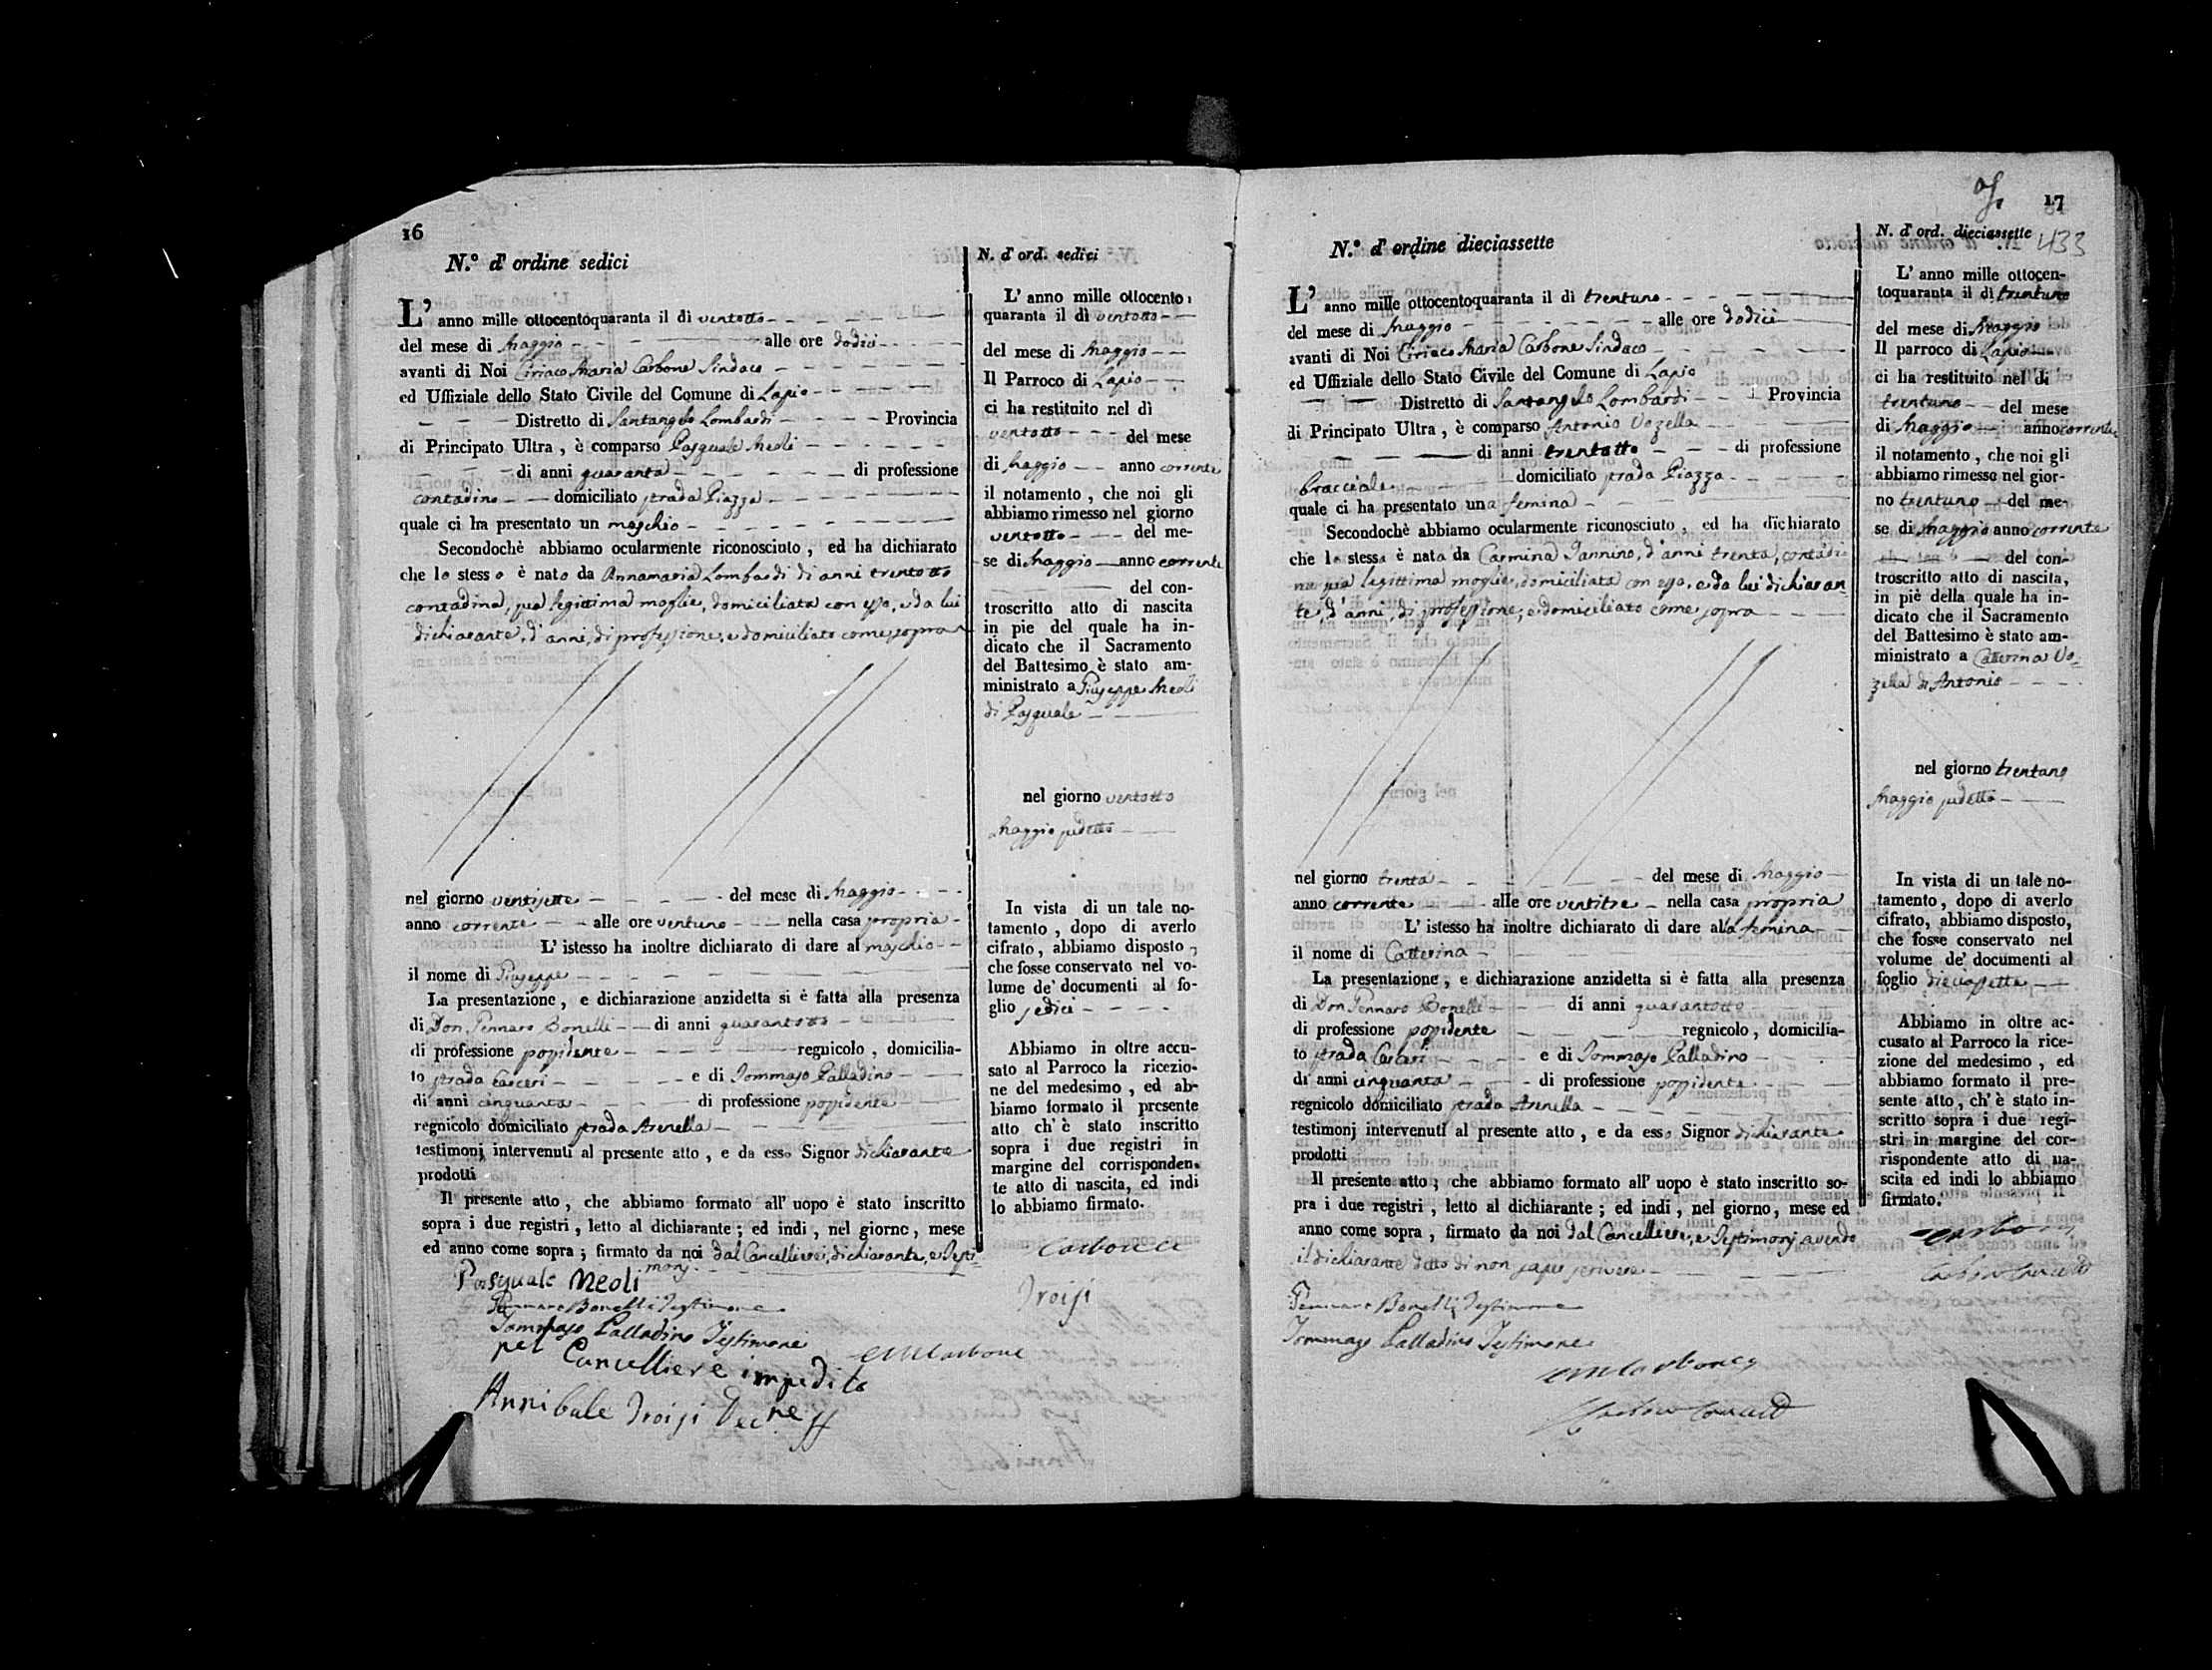 16
N.º d' ordine sedici
L' anno mille ottocentoquaranta il dì ventotto
del mese di Maggio alle ore dodici
avanti di Noi Ciriaco Maria Carbone Sindaco
ed Uffiziale dello Stato Civile del Comune di Lapio
Distretto di Santangelo Lombardi Provincia
di Principato Ultra, è comparso Pasquale Meoli
di anni quaranta di professione
contadino domiciliato strada Piazza
quale ci ha presentato un maschio
Secondochè abbiamo ocularmente riconosciuto, ed ha dichiarato
che lo stesso è nato da Annamaria Lombardi di anni trentotto
contadina, sua legittima moglie, domiciliata con esso, e da lui
dichiarante, d'anni, di professione, e domiciliato come sopra
nel giorno ventisette del mese di Maggio
anno corrente alle ore ventuno nella casa propria
L' istesso ha inoltre dichiarato di dare al maschio
il nome di Giuseppe
La presentazione, e dichiarazione anzidetta si è fatta alla presenza
di Don Gennaro Bonelli di anni quarantotto
di professione possidente regnicolo, domicilia-
to strada Casceri e di Tommaso Palladino
di anni cinquanta di professione possidente
regnicolo domiciliato strada Arenella
testimonj intervenuti al presente atto, e da esso Signor dichiarante
prodotti
Il presente atto, che abbiamo formato all' uopo è stato inscritto
sopra i due registri, letto al dichiarante; ed indi, nel giorno, mese
ed anno come sopra; firmato da noi dal Cancelliere, dichiarante, e Testi-
monj
Pasquale Meoli
Gennaro Bonelli Testimone
Tommaso Palladino Testimone
pel Cancelliere impedito
CMCarbone
Annibale Troisi
N. d' ord. sedici
L' anno mille ottocento
quaranta il dì ventotto
del mese di Maggio
Il Parroco di Lapio
ci ha restituito nel dì
ventotto del mese
di Maggio anno corrente
il notamento, che noi gli
abbiamo rimesso nel giorno
ventotto del me-
se di Maggio anno corrente
del con-
troscritto atto di nascita
in pie del quale ha in-
dicato che il Sacramento
del Battesimo è stato am-
ministrato a Giuseppe Meoli
di Pasquale
nel giorno ventotto
Maggio sudetto
In vista di un tale no-
tamento, dopo di averlo
cifrato, abbiamo disposto,
che fosse conservato nel vo-
lume de' documenti al fo-
glio sedici
Abbiamo in oltre accu-
sato al Parroco la ricezio-
ne del medesimo, ed ab-
biamo formato il presente
atto ch' è stato inscritto
sopra i due registri in
margine del corrisponden-
te atto di nascita, ed indi
lo abbiamo firmato.
Carbone
Troisi
17
433
N.º d' ordine dieciassette
L' anno mille ottocentoquaranta il dì trentuno
del mese di Maggio alle ore dodici
avanti di Noi Ciriaco Maria Carbone Sindaco
ed Uffiziale dello Stato Civile del Comune di Lapio
Distretto di Santangelo Lombardi Provincia
di Principato Ultra, è comparso Antonio Vozella
di anni trentotto di professione
bracciale domiciliato strada Piazza
quale ci ha presentato una femina
Secondochè abbiamo ocularmente riconosciuto, ed ha dichiarato
che la stessa è nata da Carmina Iannino, d'anni trenta, contadi-
na sua legittima moglie, domiciliata con esso, e da lui dichiaran
te, d'anni, di professione, e domiciliato come sopra
nel giorno trenta del mese di Maggio
anno corrente alle ore ventitre nella casa propria
L' istesso ha inoltre dichiarato di dare alla femina
il nome di Catterina
La presentazione, e dichiarazione anzidetta si è fatta alla presenza
di Don Gennaro Bonelli di anni quarantotto
di professione possidente regnicolo, domicilia-
to strada Casceri e di Tommaso Palladino
di anni cinquanta di professione possidente
regnicolo domiciliato strada Arenella
testimonj intervenuti al presente atto, e da esso Signor dichiarante
prodotti
Il presente atto, che abbiamo formato all' uopo è stato inscritto so-
pra i due registri, letto al dichiarante; ed indi, nel giorno, mese ed
anno come sopra, firmato da noi dal Cancelliere, e Testimonj avendo
il dichiarante detto di non saper scrivere
Gennaro Bonelli Testimone
Tommaso Palladino Testimone
CMCarbone
N. d' ord. dieciassette
L' anno mille ottocen-
toquaranta il dì trentuno
del mese di Maggio
Il parroco di Lapio
ci ha restituito nel di
trentuno del mese
di Maggio anno corrente
il notamento, che noi gli
abbiamo rimesso nel gior-
no trentuno del me-
se di Maggio anno corrente
del con-
troscritto atto di nascita,
in piè della quale ha in-
dicato che il Sacramento
del Battesimo è stato am-
ministrato a Catterina Vo-
zella di Antonio
nel giorno trentuno
Maggio sudetto
In vista di un tale no-
tamento, dopo di averlo
cifrato, abbiamo disposto,
che fosse conservato nel
volume de' documenti al
foglio dieciassette
Abbiamo in oltre ac-
cusato al Parroco la rice-
zione del medesimo, ed
abbiamo formato il pre-
sente atto, ch' è stato in-
scritto sopra i due regi-
stri in margine del cor-
rispondente atto di na-
scita ed indi lo abbiamo
firmato.
Carbone